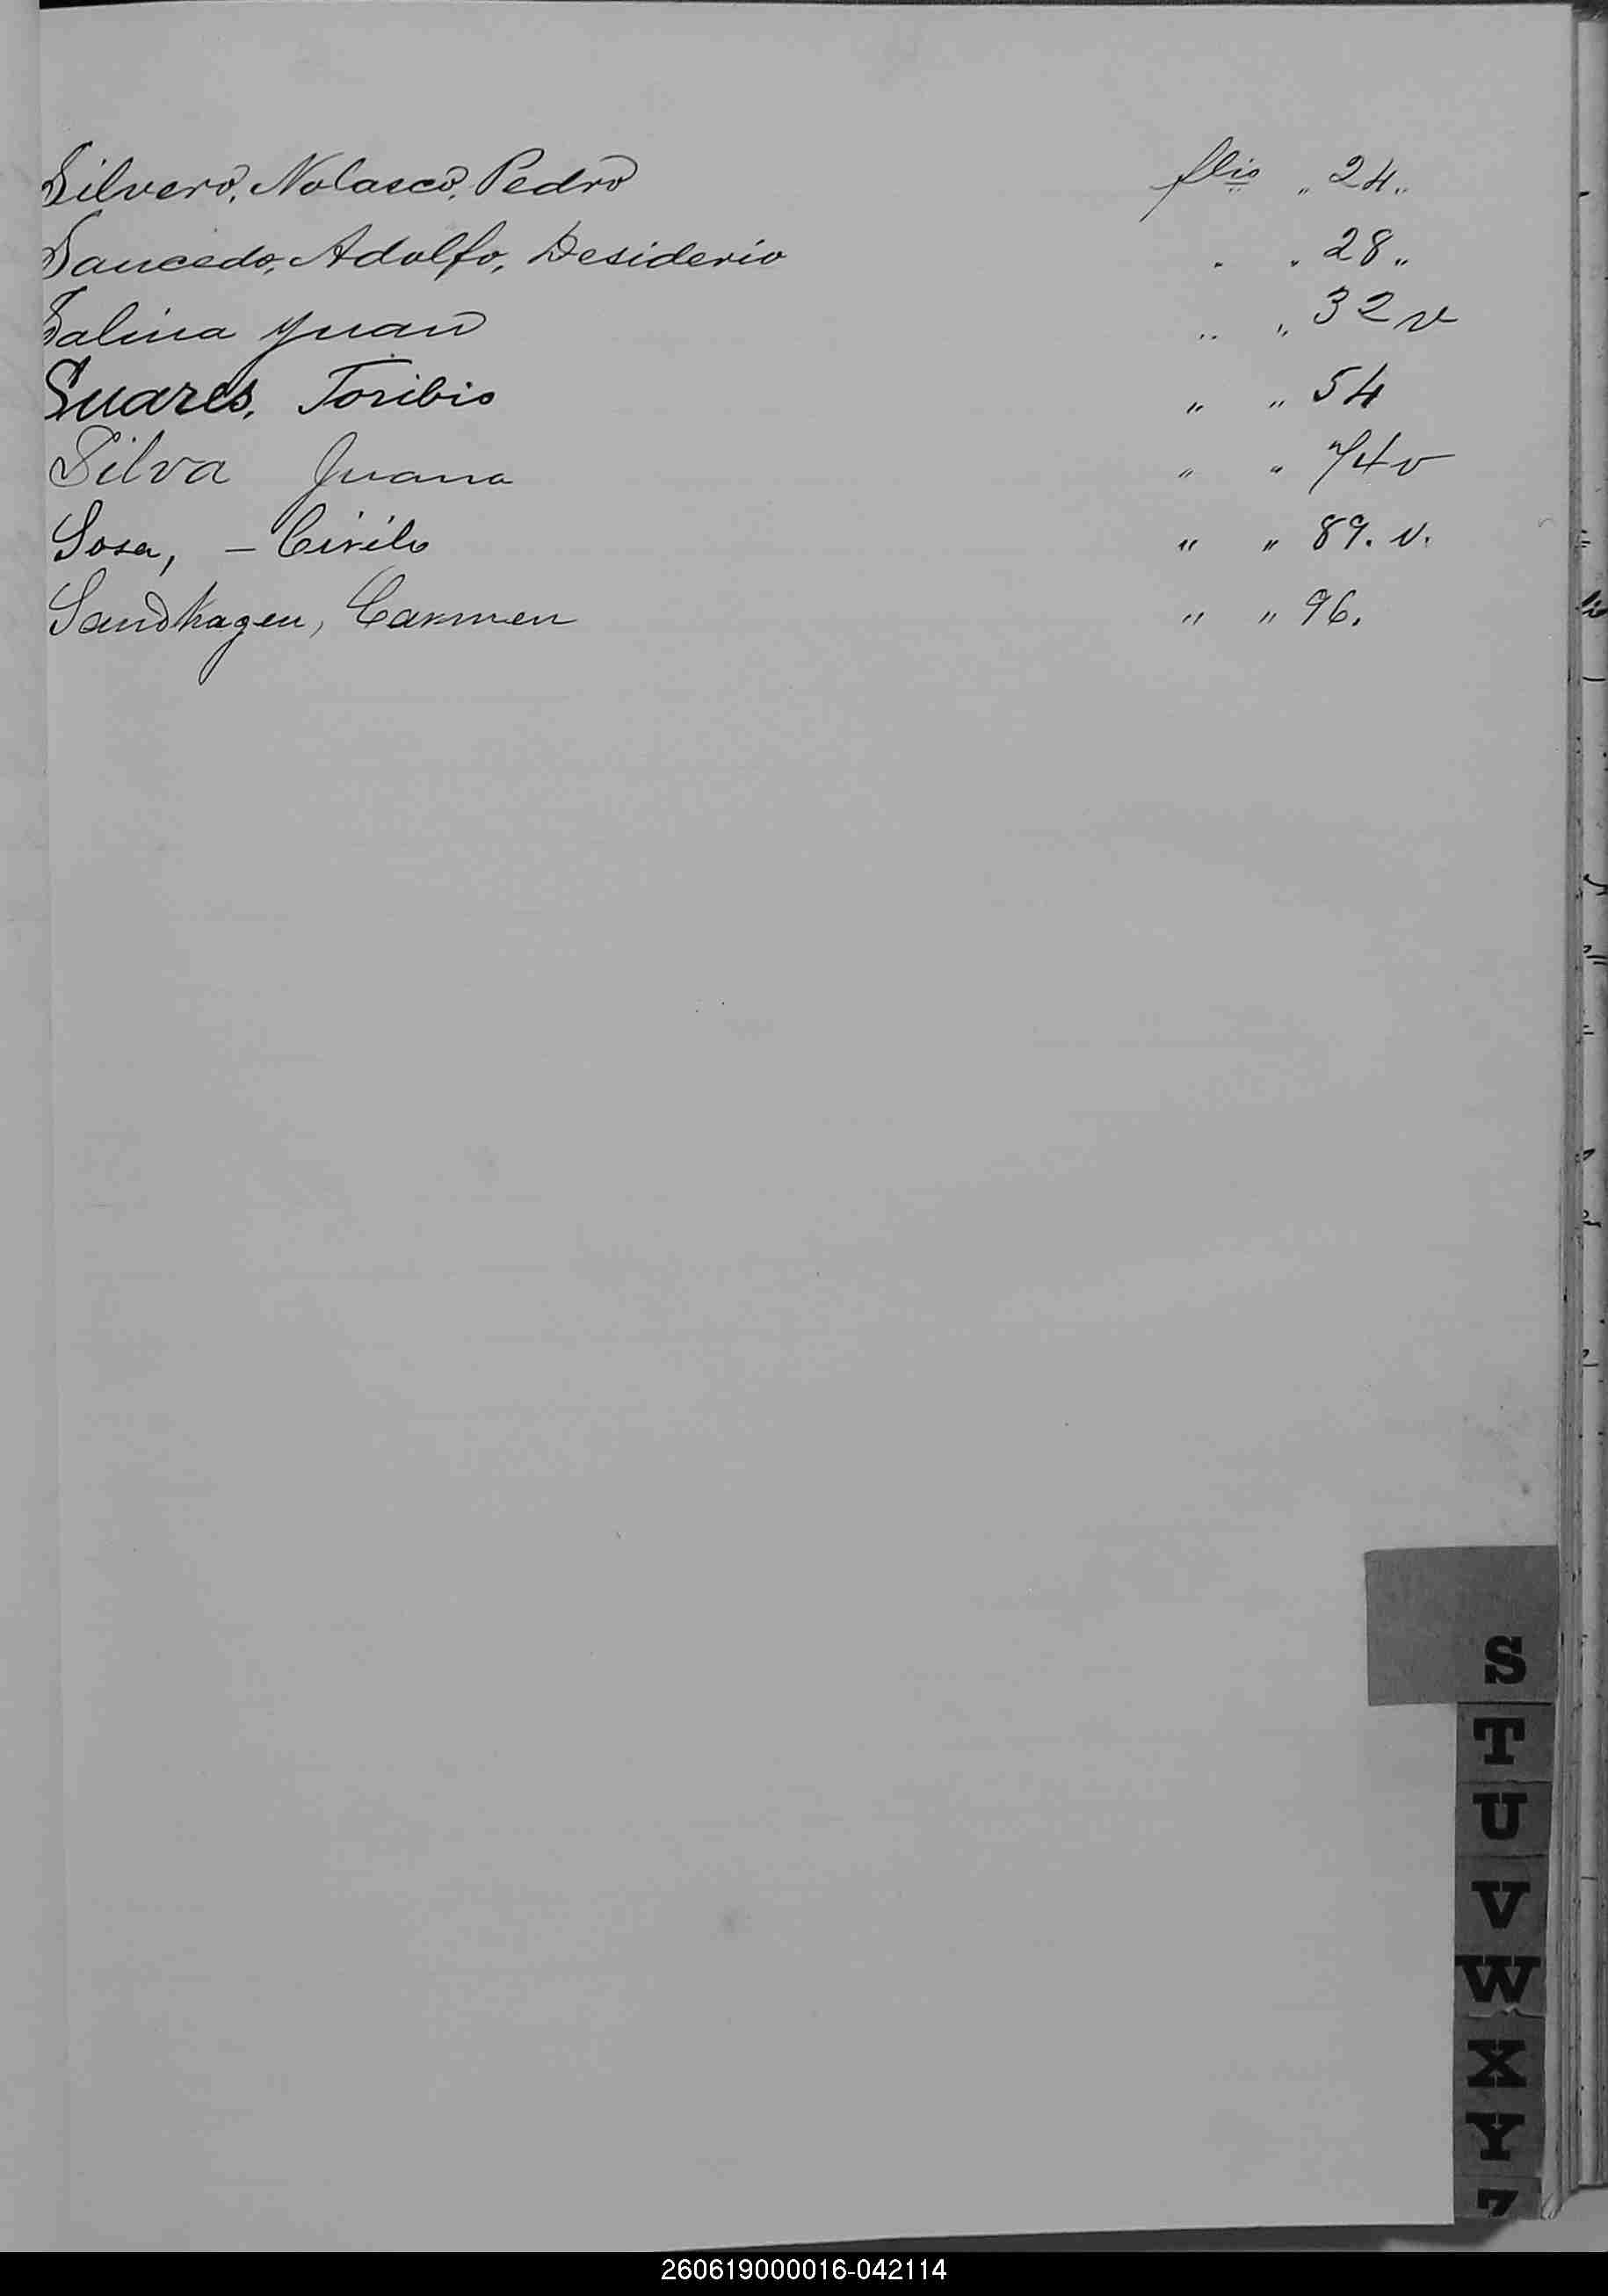 Silvero, Nolasco, Pedro flio „ 24„
Saucedo, Adolfo, Desiderio „ „ 28„
Salina Juan „ „ 32 v
Suares, Toribio „ „ 54
Silva Juana „ „ 74v
Sosa, – Cirilo „ „ 89. v.
Sandhagen, Carmen „ „ 96.
S
T
U
V
W
X
Y
Z
260619000016-042114